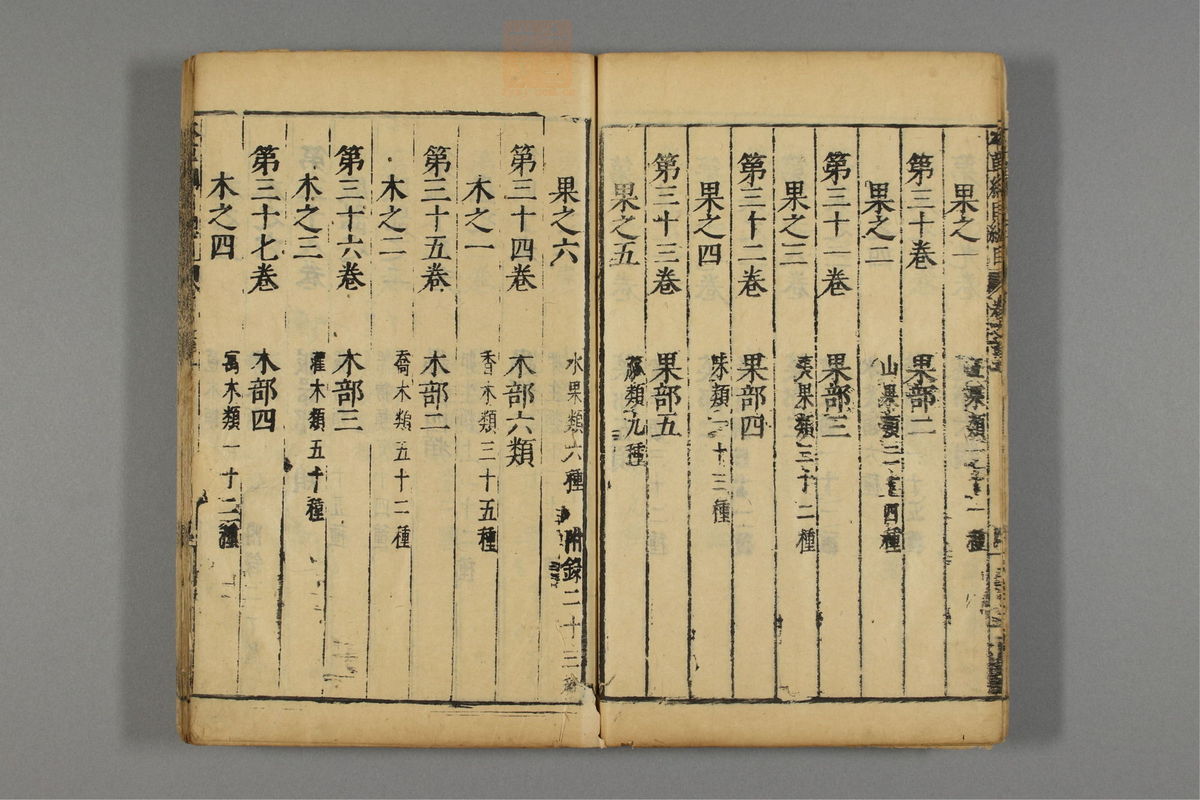 果之一 果類一十一種
第三十卷 果部二
果之二 山果類三十四種
第三十一卷 果部三
果之三 夷果類三十二種
第三十二卷 果部四
果之四 味類一十三種
第三十三卷 果部五
果之五 蓏類九種
果之六 水果類六種 附錄二十三種
第三十四卷 木部六類
木之一 香木類三十五種
第三十五卷 木部二
木之二 喬木類五十二種
第三十六卷 木部三
木之三 灌木類五十種
第三十七卷 木部四
木之四 寓木類一十二種